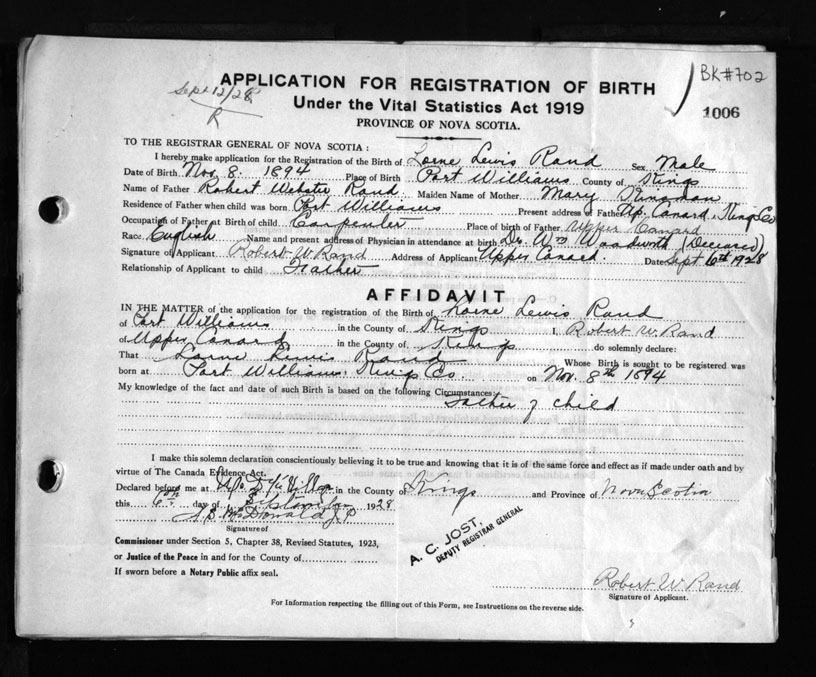 BK#702
APPLICATION FOR REGISTRATION OF BIRTH
Sept 12/28
R
Under the Vital Statistics Act 1919
1006
PROVINCE OF NOVA SCOTIA.
TO THE REGISTRAR GENERAL OF NOVA SCOTIA:
I hereby make application for the Registration of the Birth of Lorne Lewis Rand Sex Male
Date of Birth Nov. 8. 1894 Place of Birth Port Williams County of Kings
Name of Father Robert Webster Rand Maiden Name of Mother Mary Kinsman
Residence of Father when child was born Port Williams Present address of Father Up. Canard, Kings Co
Occupation of Father at Birth of child Carpenter Place of birth of Father Upper Canard
Race English Name and present address of Physician in attendance at birth Dr. Wm Woodworth (Deceased)
Signature of Applicant Robert W. Rand Address of Applicant Upper Canard. Date Sept 6th 1928
Relationship of Applicant to child Father
AFFIDAVIT
IN THE MATTER of the application for the registration of the Birth of Lorne Lewis Rand
of Port Williams in the County of Kings I, Robert W. Rand
of Upper Canard in the County of Kings do solemnly declare:
That Lorne Lewis Rand Whose Birth is sought to be registered was
born at Port Williams Kings Co on Nov. 8th 1894
My knowledge of the fact and date of such Birth is based on the following Circumstances: Father of child
I make this solemn declaration conscientiously believing it to be true and knowing that it is of the same force and effect as if made under oath and by
virtue of The Canada Evidence Act.
Declared before me at in the County of Kings and Province of Nova Scotia
this 6th day of September 1928
McDonald J.P
Signature of
Commissioner under Section 5, Chapter 38, Revised Statutes, 1923,
or Justice of the Peace in and for the County of
If sworn before a Notary Public affix seal.
A. C. JOST,
DEPUTY REGISTRAR GENERAL
Robert W. Rand
Signature of Applicant.
For Information respecting the filling out of this Form, see Instructions on the reverse side.